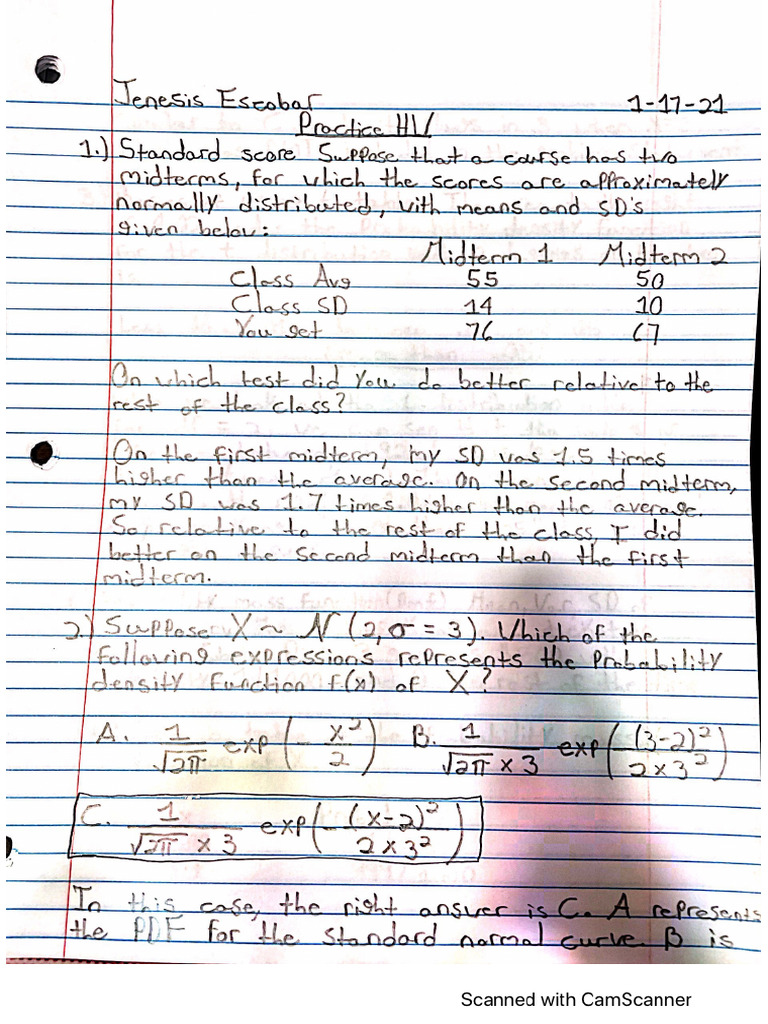 Jenesis Escobar 1-17-21
Practice HW
1.) Standard score Suppose that a course has two
midterms, for which the scores are approximately
normally distributed, with means and SD's
given below:
Midterm 1 Midterm 2
Class Avg 55 50
Class SD 14 10
You get 76 67
On which test did you do better relative to the
rest of the class?
On the first midterm, my SD was 1.5 times
higher than the average. On the second midterm,
my SD was 1.7 times higher than the average.
So relative to the rest of the class, I did
better on the second midterm than the first
midterm.
2.) Suppose X ~ N (2, σ = 3). Which of the
following expressions represents the probability
density function f(x) of X?
A. 1/√2π exp(- x²/2) B. 1/(√2π × 3) exp(- (3-2)²/(2×3²))
C. 1/(√2π × 3) exp(- (x-2)²/(2×3²))
In this case, the right answer is C. A represents
the PDF for the standard normal curve. B is
Scanned with CamScanner